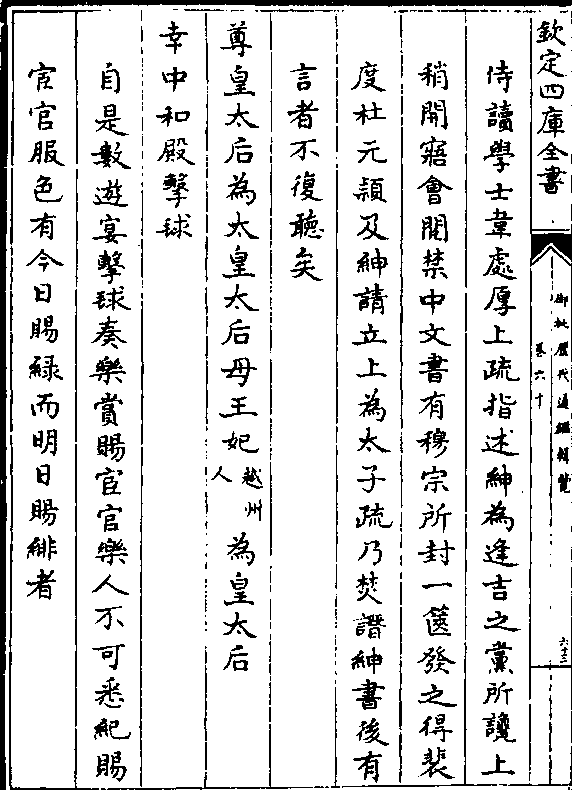 欽定四庫全書
御批歷代通鑑輯覽
卷六十
六十三
侍讀學士韋處厚上疏指述紳為逢吉之黨所讒上
稍開寤會閱禁中文書有穆宗所封一篋發之得裴
度杜元頴及紳請立上為太子疏乃焚譖紳書後有
言者不復聽矣
尊皇太后為太皇太后母王妃越州人為皇太后
幸中和殿擊球
自是數遊宴擊球奏樂賞賜宦官樂人不可悉紀賜
宦官服色有今日賜緑而明日賜緋者